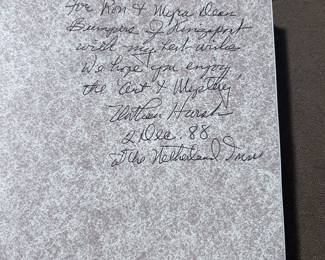 For Ron & Myra Dean
Bumpire of Kingsport
with my best wishes
We hope you enjoy
the "Art & Mystery"
Nathan Harsh
2 Dec. '88
at the Netherland Inn